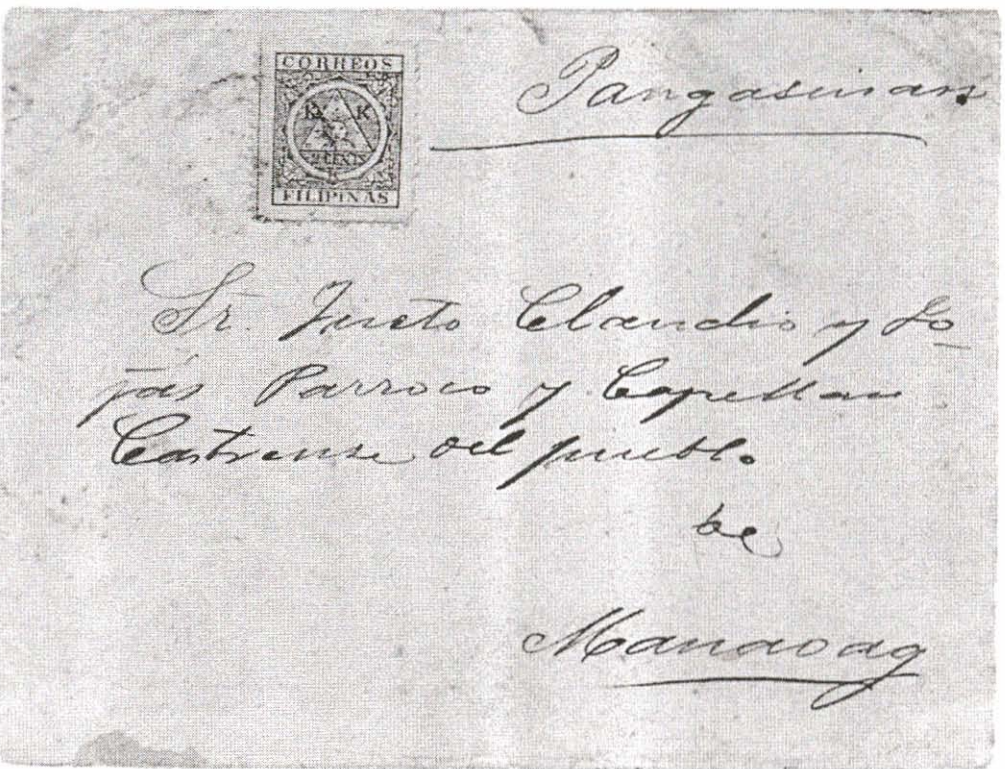 CORREOS
K K
2 CENTS
K
FILIPINAS
Pangasinan
Sr. Justo Claudio y Fo-
jas Parroco y Capellan
Castrense del pueblo
de
Manaoag